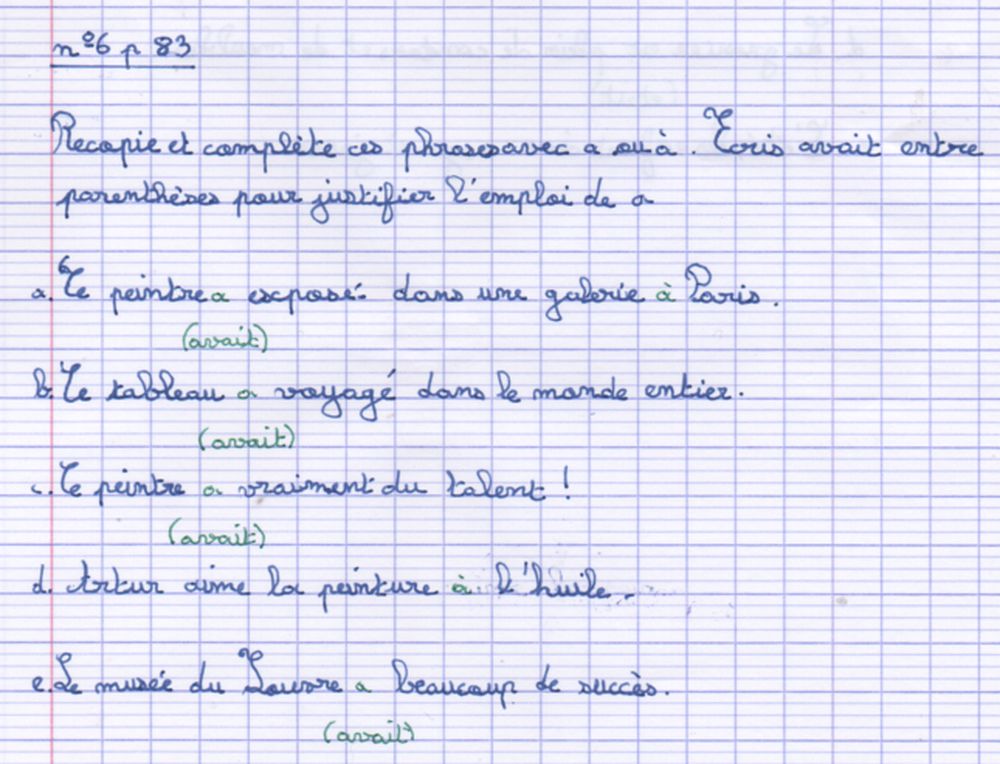 n°6 p 83
Recopie et complète ces phrases avec a ou à. Ecris avait entre
parenthèses pour justifier l'emploi de a
a. Le peintre a exposé dans une galerie à Paris.
(avait)
b. Le tableau a voyagé dans le monde entier.
(avait)
c. Ce peintre a vraiment du talent !
(avait)
d. Artur aime la peinture à l'huile.
e. Le musée du Louvre a beaucoup de succès.
(avait)